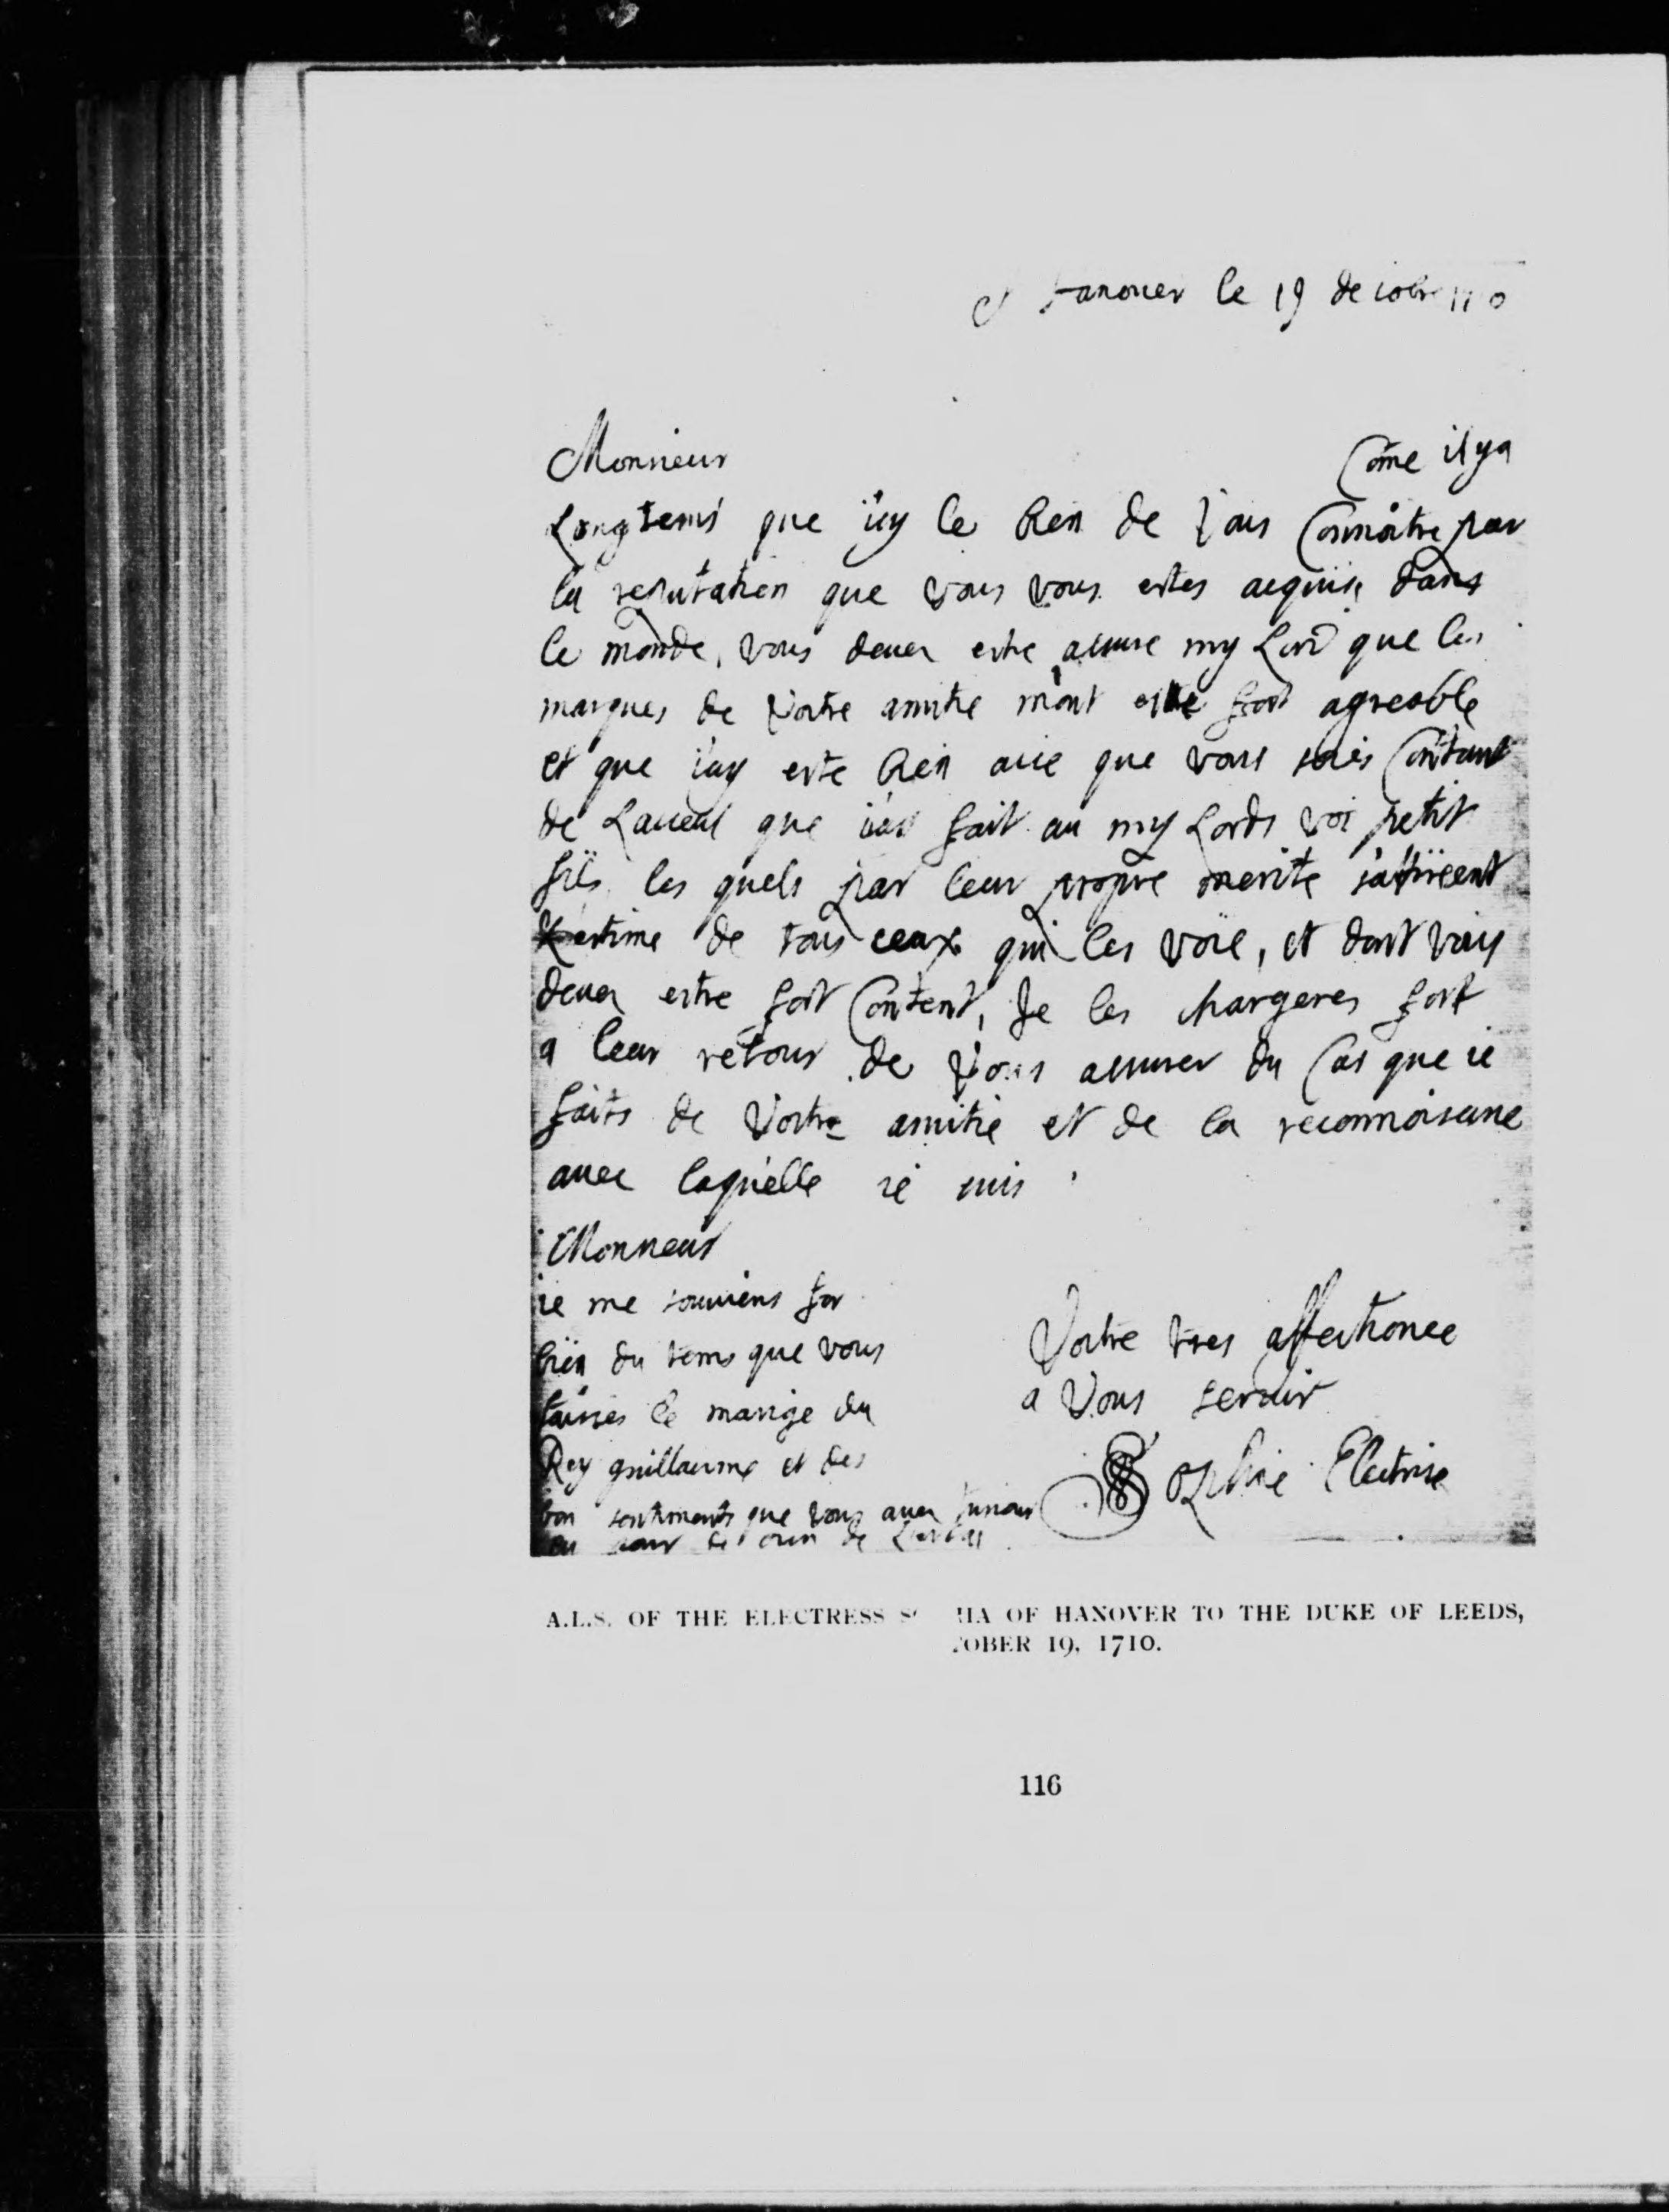 Hanover le 19 de
Monsieur Come il y a
Longtems que i'ay le bien de Vous Connoitre par
la reputation que vous vous estes acquise dans
le monde, vous deues estre assure my Lord que les
marques de Vostre amitie m'ont este fort agreable
et que i'ay este bien aise que vous soies Contant
de Laceuil que i'ay fait au my Lords vos petit
fils les quels par leur propre merite s'attireent
L'estime de tous ceux qui les voie, et dont vous
deues estre fort Content, Je les chargeres fort
a leur retour de Vous assurer du Cas que ie
faits de Vostre amitie et de la reconnoisance
avec laquelle ie suis
Monsieur
ie me souviens for
bien du tems que vous
faisies le marige du
Rey guillaume et des
bon sentiments que vous aues
Vostre tres affectionee
a Vous servir
Sophie Electrise
A.L.S. OF THE ELECTRESS OF HANOVER TO THE DUKE OF LEEDS,
OBER 19, 1710.
116